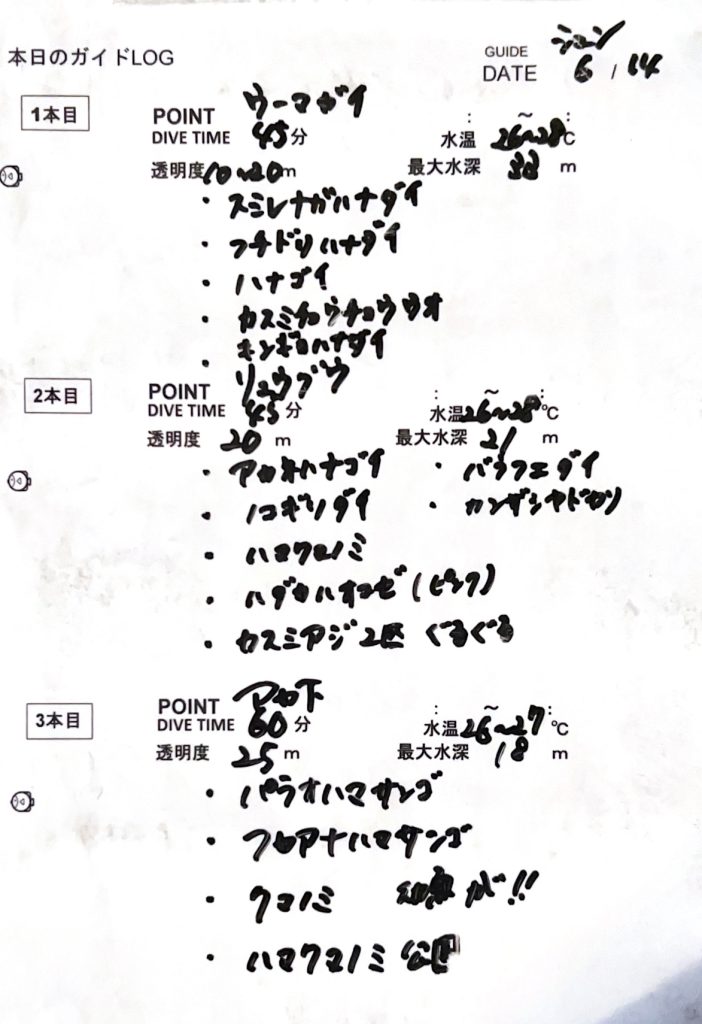 本日のガイドLOG
GUIDE ジュン
DATE 6 / 14
1本目
POINT ウーマガイ
: ～ :
DIVE TIME 45分 水温 26～28℃
透明度 10～20m 最大水深 33 m
・スミレナガハナダイ
・フチドリハナダイ
・ハナゴイ
・カスミチョウチョウウオ
・キンギョハナダイ
2本目
POINT リュウグウ
: ～ :
DIVE TIME 45分 水温 26～28℃
透明度 20 m 最大水深 21 m
・アカネハナゴイ ・バラフエダイ
・ノコギリダイ ・カンザシヤドカリ
・ハマクマノミ
・ハダカハオコゼ(ピンク)
・カスミアジ2匹 ぐるぐる
3本目
POINT アカ下
: ～ :
DIVE TIME 60分 水温 26～27℃
透明度 25 m 最大水深 18 m
・パラオハマサンゴ
・フカアナハマサンゴ
・クマノミ 幼魚が!!
・ハマクマノミ